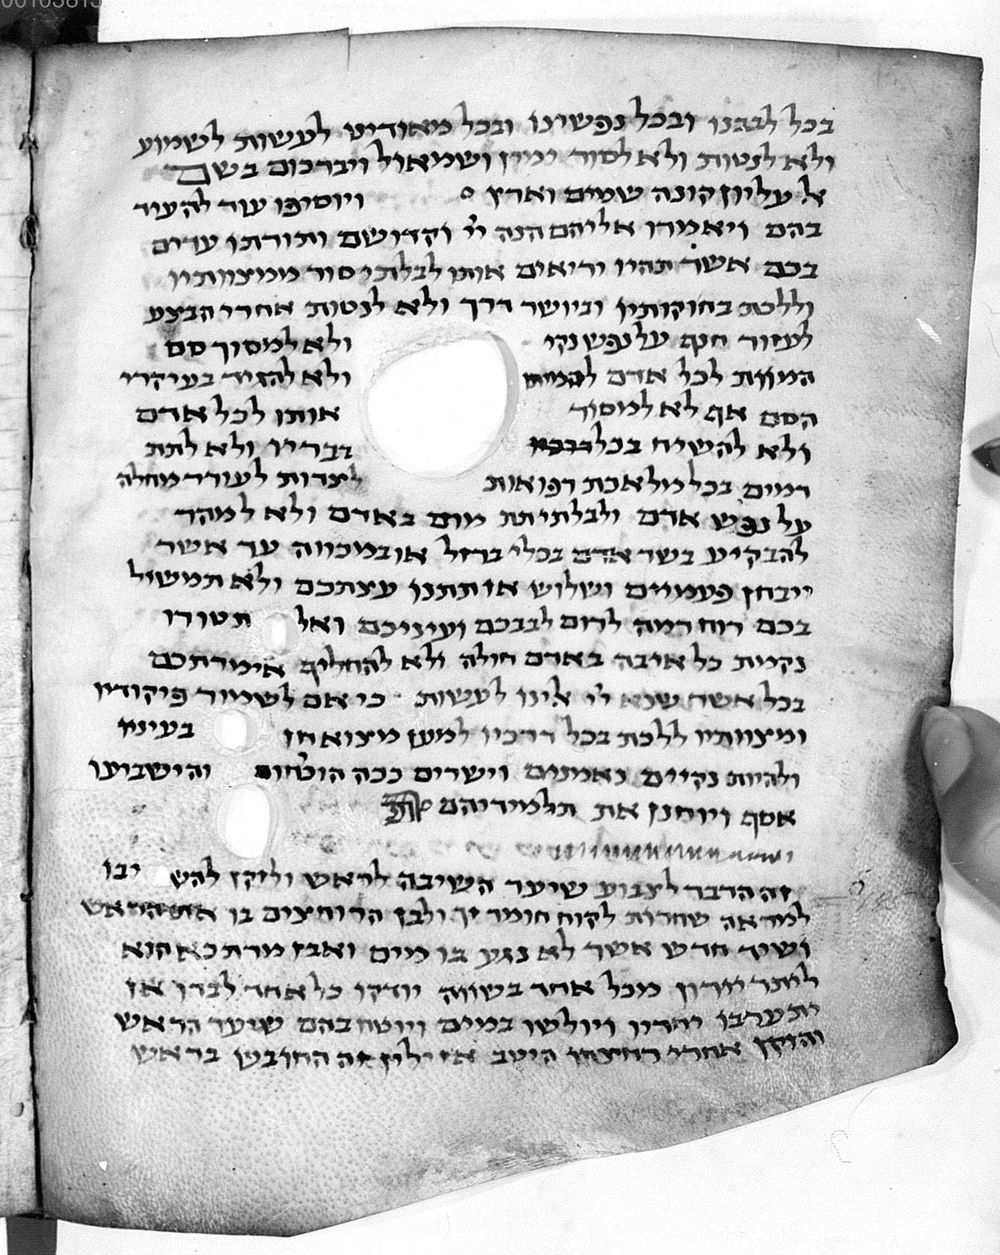 בכל לבבנו ובכל נפשינו ובכל מאודינו לעשות לשמוע
ולא לנטות ולא לסור ימין ושמאול ויברכום בשם
אל עליון קונה שמים וארץ ויוסיפו עוד להעיד
בהם ויאמרו אליהם הנה יי וקדושם ותורתו עדים
בכם אשר תהיו יריאים אותו לבלתי סור ממיצוותיו
וללכת בחוקותיו וביושר דרך ולא לנטות אחרי הבצע
לעזור חנף על נפש נקי ולא למסוך סם
המוות לכל אדם ולא להגיד בעיקרי
הסם אף לא למסור אותו לכל אדם
ולא להשיח בכל דבריו ולא לתת
דמים בכל מלאכת רפואות לצדות לעורר מחלה
על נפש אדם ולבלתי תת מום באדם ולא למהר
להבקיע בשר אדם בכלי ברזל או במכווה עד אשר
ייבחן פעמיים ושלוש אז תתנו עצתכם ולא תמשול
בכם רוח רמה לרום לבבכם ועיניכם ואל תטורו
נקמת כל איבה באדם חולה ולא להחליף אימרתכם
בכל אשר שנא יי אלינו לעשות כי אם לשמור פיקודיו
ומיצוותיו ללכת בכל דרכיו למען מצוא חן בעיניו
ולהיות נקיים נאמנים וישרים ככה הוכחום והישביעו
אסף ויוחנן את תלמידיהם
זה הדבר לצבוע שיער השיבה לראש ולזקן להש יבו
למראה שחרות לקוח חומר ולבן הרוחצים בו את הראש
ושיד חדש אשר לא נגע בו מים ואבן
מכל אחד בשווה יודקו כל אחד לבדו אז
יתערבו יחדיו ויולשו במים ויוטח בהם שיער הראש
והזקן אחרי היטב אז ילין זה החובש בראש